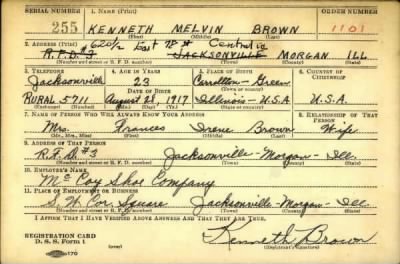 SERIAL NUMBER 1. NAME (Print) ORDER NUMBER
255 KENNETH MELVIN BROWN 1101
(First) (Middle) (Last)
620½ East 7th St Centralia
2. ADDRESS (Print)
R.F.D.#3 JACKSONVILLE MORGAN ILL
(Number and street or R. F. D. number) (Town) (County) (State)
3. TELEPHONE 4. AGE IN YEARS 5. PLACE OF BIRTH 6. COUNTRY OF CITIZENSHIP
Jacksonville 23 Carrollton - Green
DATE OF BIRTH (Town or county)
RURAL 5711 August 28 1917 Illinois - U.S.A U.S.A.
(Mo.) (Day) (Yr.) (State or country)
7. NAME OF PERSON WHO WILL ALWAYS KNOW YOUR ADDRESS 8. RELATIONSHIP OF THAT PERSON
Mrs. Frances Irene Brown Wife
(Mr., Mrs., Miss) (First) (Middle) (Last)
9. ADDRESS OF THAT PERSON
R.F.D.#3 Jacksonville - Morgan - Ill.
(Number and street or R. F. D. number) (Town) (County) (State)
10. EMPLOYER'S NAME
McCoy Shoe Company
11. PLACE OF EMPLOYMENT OR BUSINESS
S.W. Cor. Square Jacksonville - Morgan - Ill
(Number and street or R. F. D. number) (Town) (County) (State)
I AFFIRM THAT I HAVE VERIFIED ABOVE ANSWERS AND THAT THEY ARE TRUE.
REGISTRATION CARD
D. S. S. Form 1
Kenneth Brown